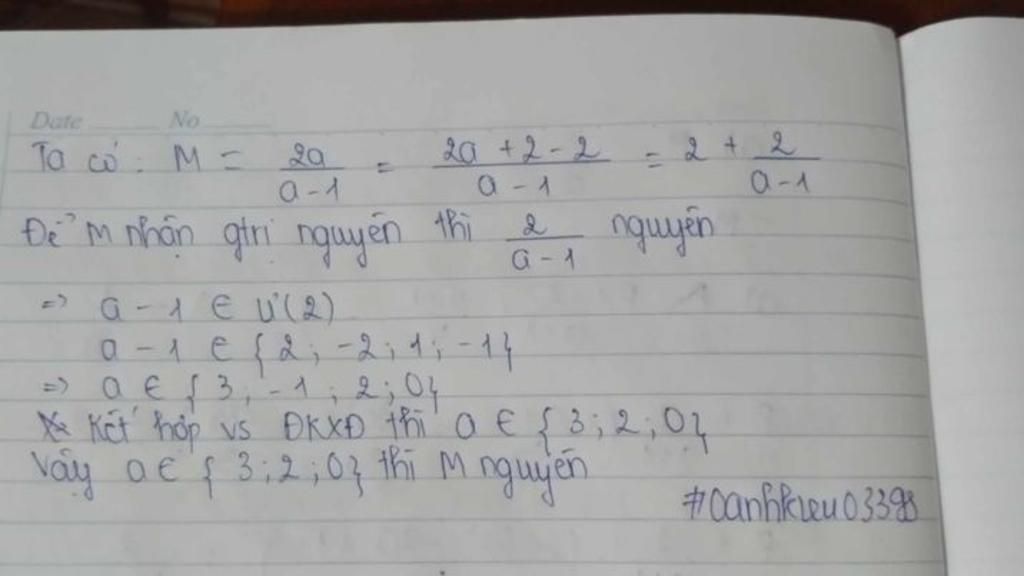 Date No
Ta có: M = 2a/(a-1) = (2a+2-2)/(a-1) = 2 + 2/(a-1)
Để M nhận gtrị nguyên thì 2/(a-1) nguyên
=> a - 1 ∈ Ư(2)
a - 1 ∈ {2; -2; 1; -1}
=> a ∈ {3; -1; 2; 0}
Kết hợp vs ĐKXĐ thì a ∈ {3; 2; 0}
Vậy a ∈ {3; 2; 0} thì M nguyên